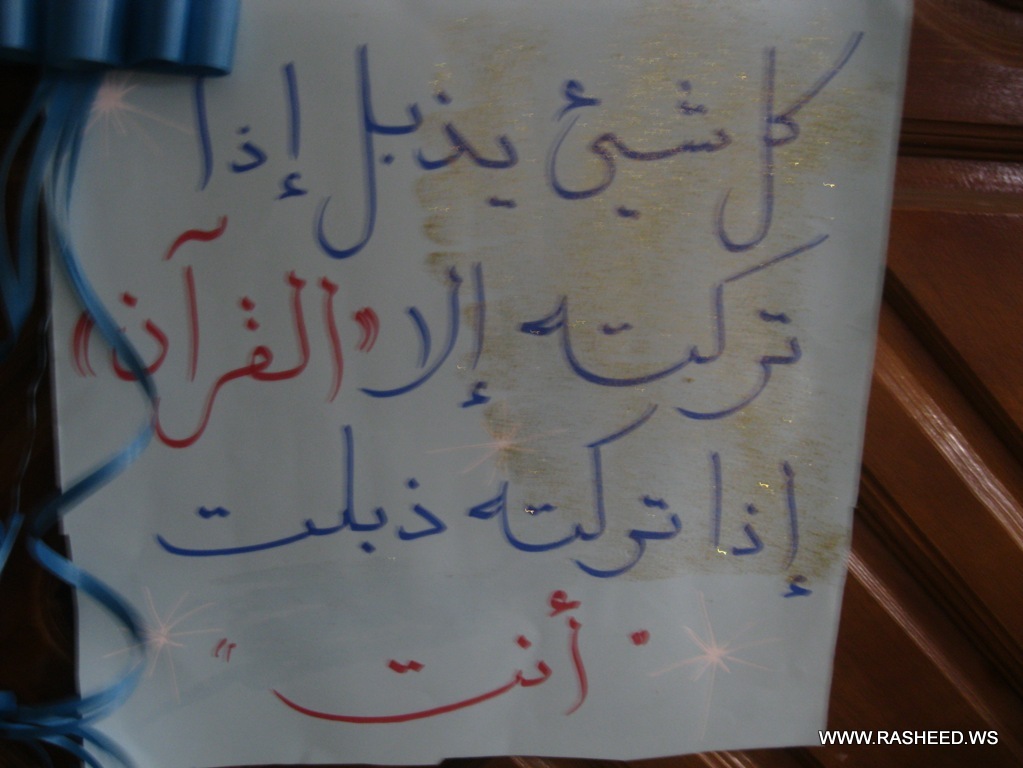 كل شيئ يذبل إذا
تركته إلا «القرآن»
إذا تركته ذبلت
"أنت"
WWW.RASHEED.WS